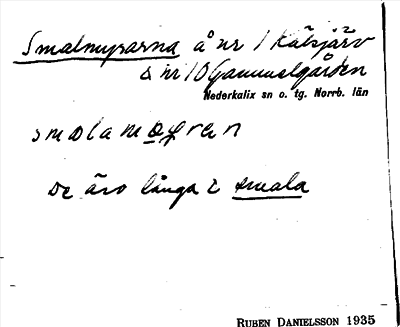 Smalmyrarna å nr 1 Kälsjärv
å nr 10 Gammelgården
Nederkalix sn o. tg. Norrb. län
De äro långa & smala
RUBEN DANIELSSON 1935